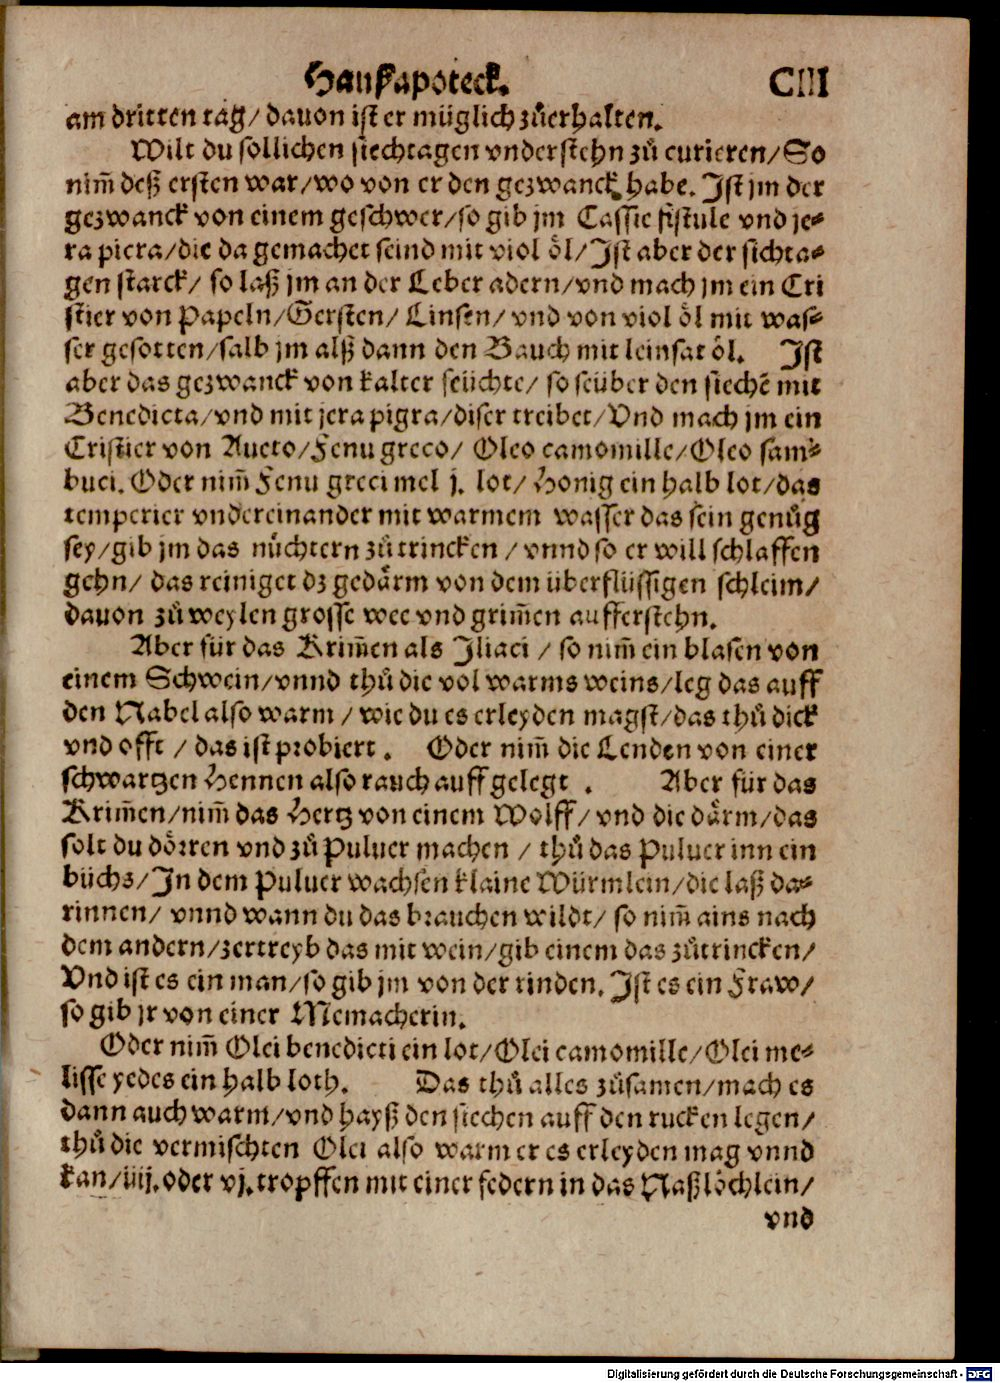 Haußapoteck. CIII
am dritten tag/ dauon ist er müglich zůerhalten.
Wilt du sollichen siechtagen vnderstehn zů curieren/So
nim̃ deß ersten war/wo von er den gezwanck habe. Ist jm der
gezwanck von einem geschwer/so gib jm Cassie fistule vnd je-
ra picra/die da gemachet seind mit viol öl/Ist aber der sichta-
gen starck/ so laß jm an der Leber adern/vnd mach jm ein Cri
stier von Papeln/Gersten/ Linsen/ vnd von viol öl mit was-
ser gesotten/salb jm alß dann den Bauch mit leinsat öl. Ist
aber das gezwanck von kalter feüchte/ so seüber den siechẽ mit
Benedicta/vnd mit jera pigra/diser treibet/Vnd mach jm ein
Cristier von Aneto/Fenu greco/ Oleo camomille/Oleo sam-
buci. Oder nim̃ Fenu greci mel j. lot/ Honig ein halb lot/das
temperier vndereinander mit warmem wasser das sein genůg
sey/gib jm das nůchtern zů trincken / vnnd so er will schlaffen
gehn/ das reiniget dz gedårm von dem überflüssigen schleim/
dauon zů weylen grosse wee vnd grim̃en aufferstehn.
Aber für das Krim̃en als Iliaci / so nim̃ ein blasen von
einem Schwein/vnnd thů die vol warms weins/leg das auff
den Nabel also warm / wie du es erleyden magst/das thů dick
vnd offt / das ist probiert. Oder nim̃ die Lenden von einer
schwartzen Hennen also rauch auff gelegt . Aber für das
Krim̃en/nim̃ das Hertz von einem Wolff/ vnd die därm/das
solt du dörren vnd zů Puluer machen / thů das Puluer inn ein
büchs/In dem Puluer wachsen klaine Würmlein/die laß da-
rinnen/ vnnd wann du das brauchen wildt/ so nim̃ ains nach
dem andern/zertreyb das mit wein/gib einem das zůtrincken/
Vnd ist es ein man/so gib jm von der rinden. Ist es ein Fraw/
so gib jr von einer Memacherin.
Oder nim̃ Olei benedicti ein lot/Olei camomille/Olei me-
lisse yedes ein halb loth. Das thů alles zůsamen/mach es
dann auch warm/vnd hayß den siechen auff den rucken legen/
thů die vermischten Olei also warm er es erleyden mag vnnd
kan/iiij. oder vj. tropffen mit einer federn in das Naßlöchlein/
vnd
Digitalisierung gefördert durch die Deutsche Forschungsgemeinschaft - DFG